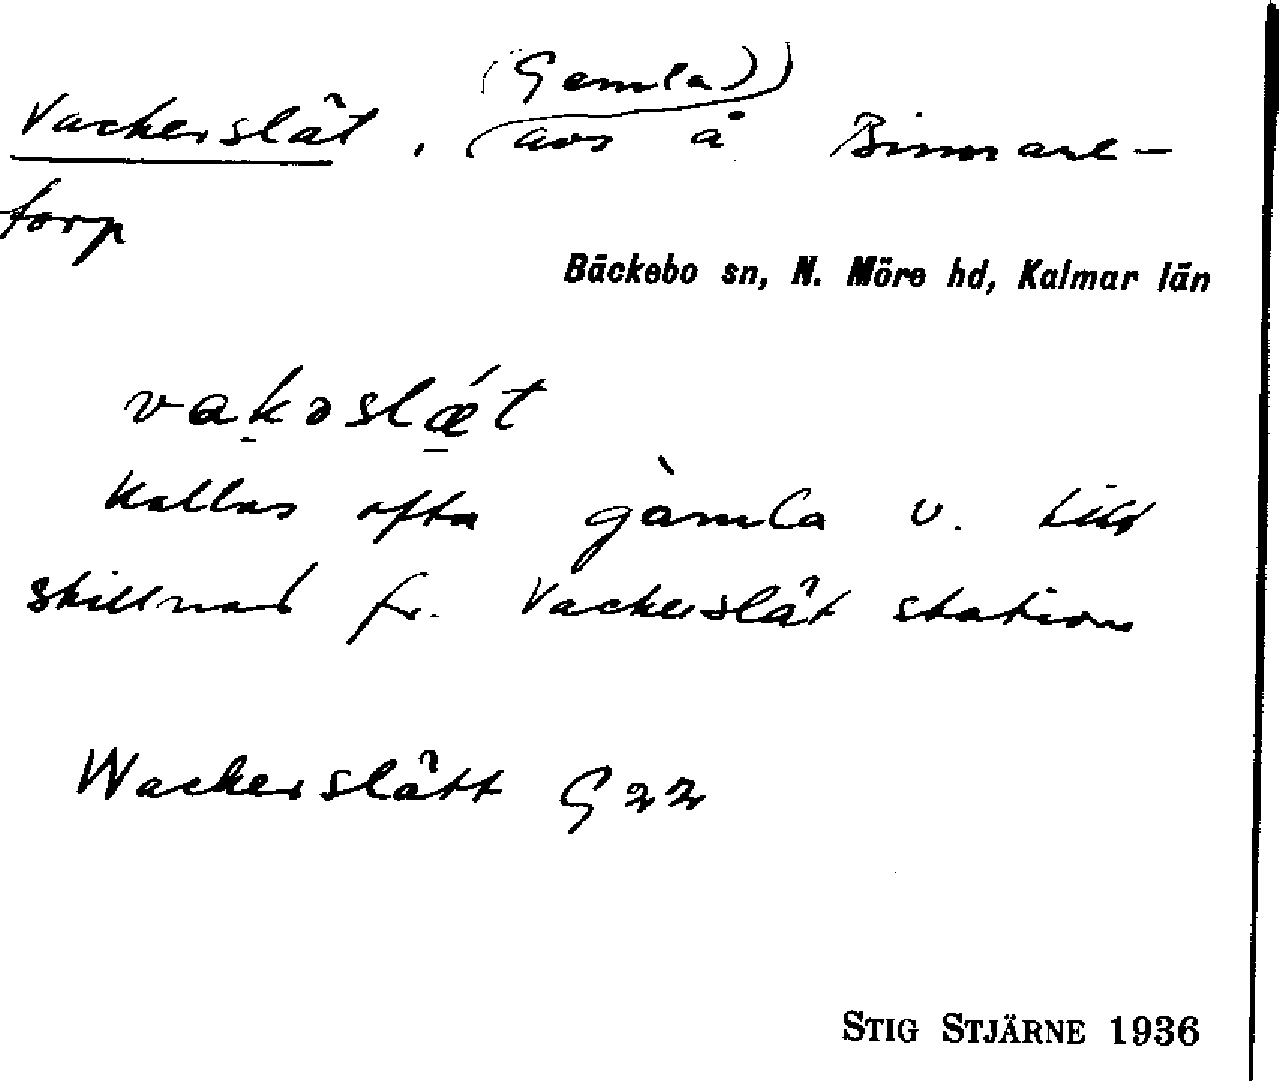 (Gamla))
Vackerslät, avs å Binnare-
torp
Bäckebo sn, N. Möre hd, Kalmar län
vakəslǽt
Kallas ofta gàmla v. till
skillnad fr. Vackerslät station
Wackerslätt G 22
STIG STJÄRNE 1936